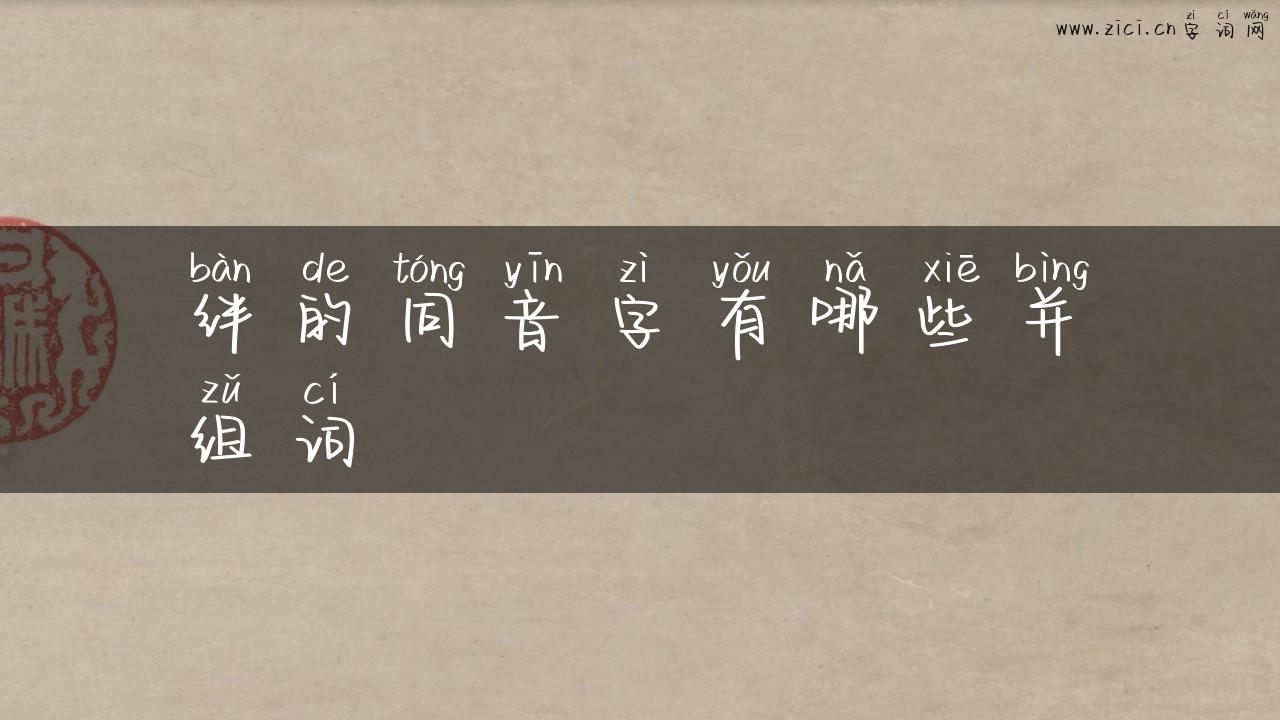 zì cí wǎng
www.zici.cn字词网
bàn de tóng yīn zì yǒu nǎ xiē bìng
绊的同音字有哪些并
zǔ cí
组词